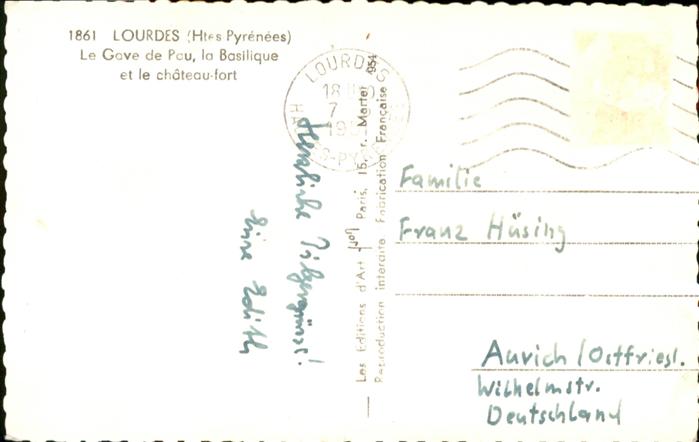 1861 LOURDES (Htes Pyrénées)
Le Gave de Pau, la Basilique
et le château-fort
LOURDES
18 H
7
19
HAUTES-PYRÉNÉES
Herzliche Pilgergrüsse!
Edith
Les Editions d'Art Yvon Paris, 15, r. Martel
Reproduction interdite Fabrication Française
Familie
Franz Hüsing
Aurich/Ostfriesl.
Wilhelmstr.
Deutschland